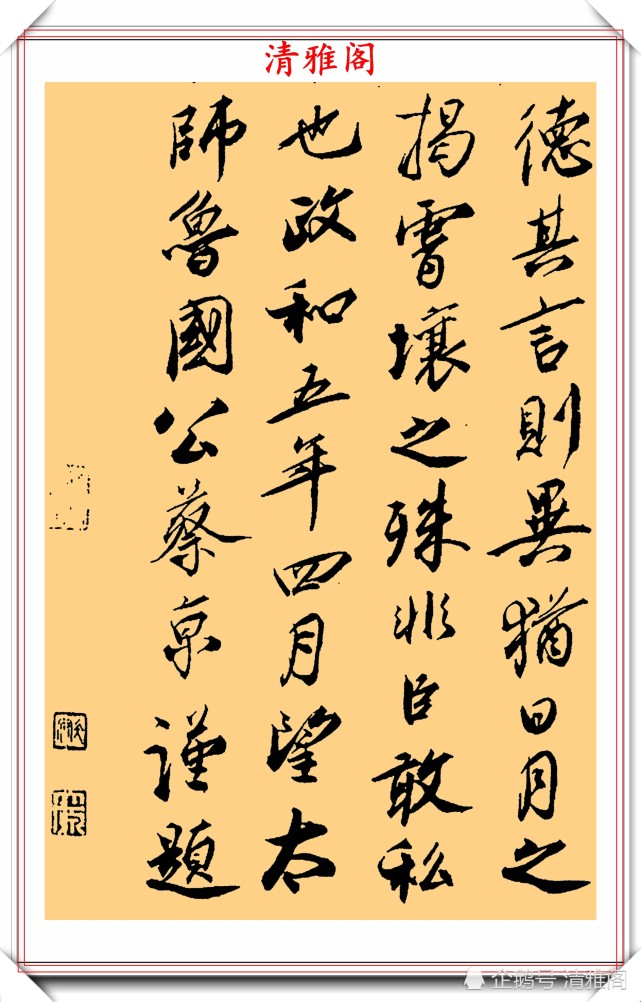 清雅阁
德其言則異猶日月之
揭霄壤之殊非臣敢私
也政和五年四月望太
師魯國公蔡京謹題
企鹅号 清雅阁